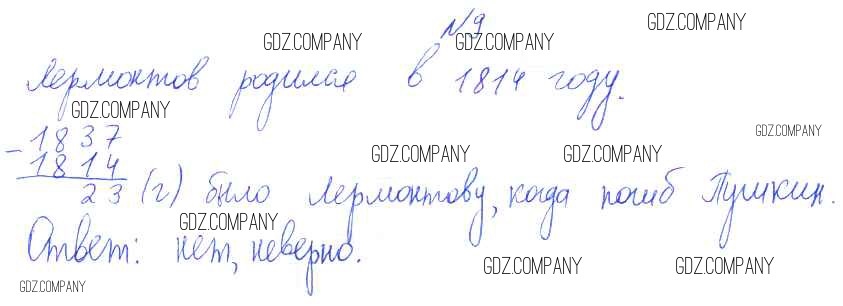 №9
GDZ.COMPANY
GDZ.COMPANY GDZ.COMPANY
Лермонтов родился в 1814 году.
GDZ.COMPANY
GDZ.COMPANY
- 1837
GDZ.COMPANY GDZ.COMPANY
1814
23 (г) было Лермонтову, когда погиб Пушкин.
GDZ.COMPANY
Ответ: нет, неверно.
GDZ.COMPANY GDZ.COMPANY
GDZ.COMPANY